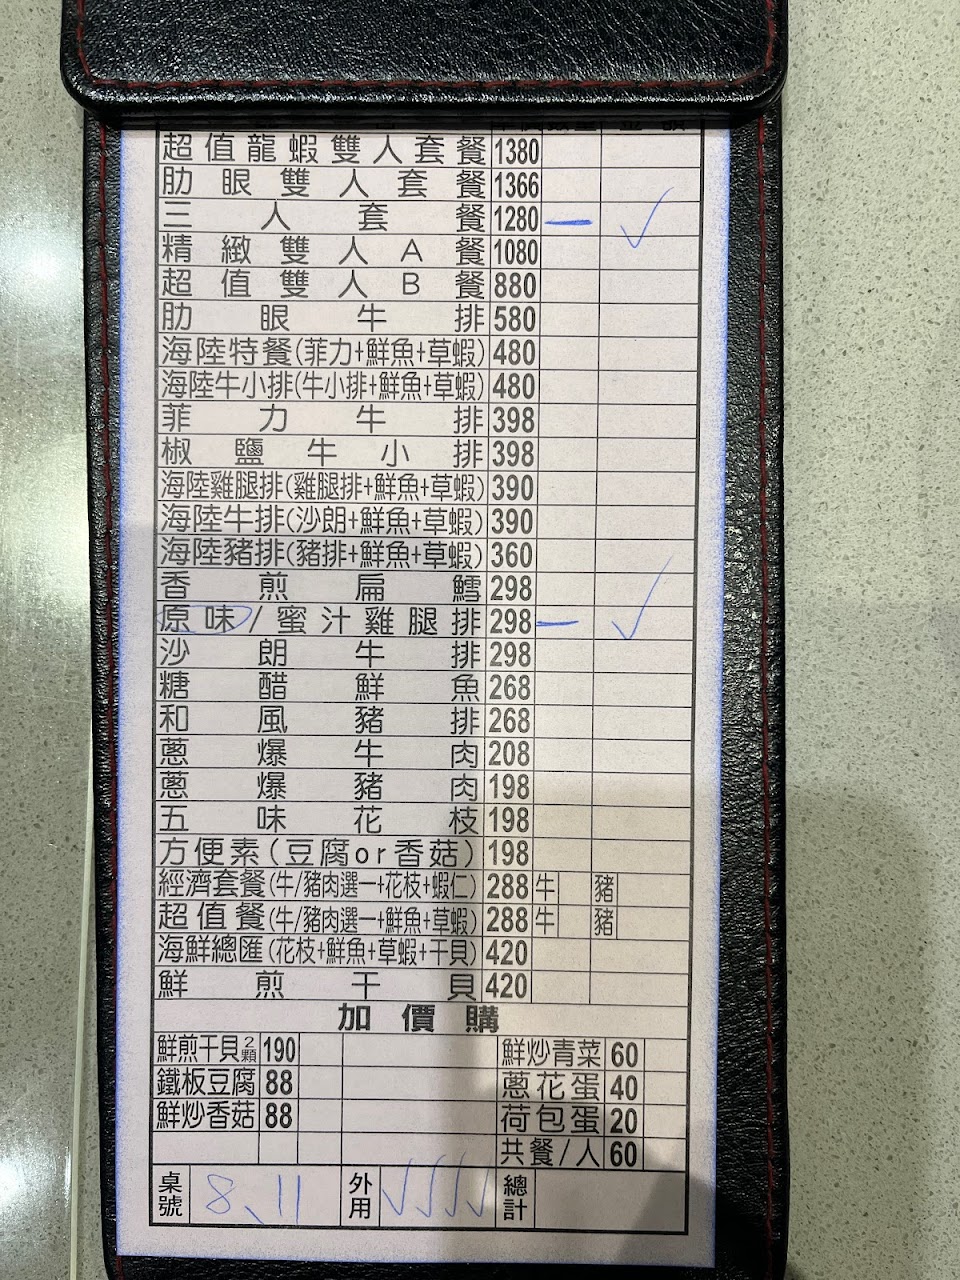 超值龍蝦雙人套餐 1380
肋眼雙人套餐 1366
三人套餐 1280 — ✓
精緻雙人A餐 1080
超值雙人B餐 880
肋眼牛排 580
海陸特餐(菲力+鮮魚+草蝦) 480
海陸牛小排(牛小排+鮮魚+草蝦) 480
菲力牛排 398
椒鹽牛小排 398
海陸雞腿排(雞腿排+鮮魚+草蝦) 390
海陸牛排(沙朗+鮮魚+草蝦) 390
海陸豬排(豬排+鮮魚+草蝦) 360
香煎扁鱈 298
原味/蜜汁雞腿排 298 — ✓
沙朗牛排 298
糖醋鮮魚 268
和風豬排 268
蔥爆牛肉 208
蔥爆豬肉 198
五味花枝 198
方便素(豆腐or香菇) 198
經濟套餐(牛/豬肉選一+花枝+蝦仁) 288 牛 豬
超值餐(牛/豬肉選一+鮮魚+草蝦) 288 牛 豬
海鮮總匯(花枝+鮮魚+草蝦+干貝) 420
鮮煎干貝 420
加價購
鮮煎干貝2顆 190 鮮炒青菜 60
鐵板豆腐 88 蔥花蛋 40
鮮炒香菇 88 荷包蛋 20
共餐/人 60
桌號 8、11 外用 ✓✓✓✓ 總計